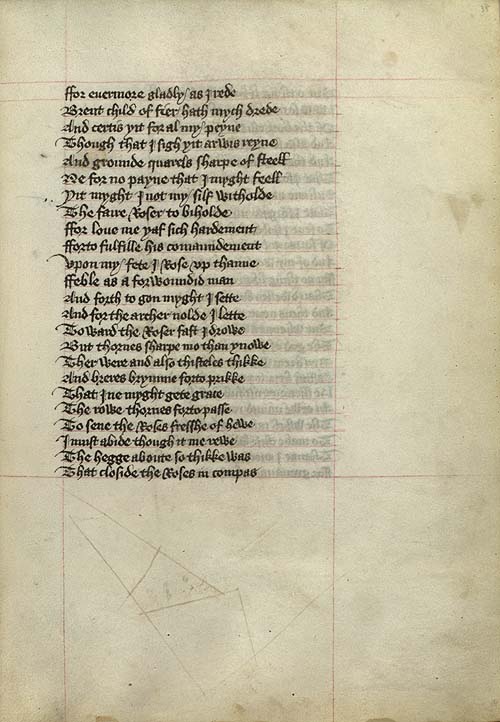 ffor euermore gladly as J rede
Brent child of fier hath mych drede
And certis yit for al my peyne
Though that J sigh yit arwis reyne
And grounde quarels sharpe of steell
Ne for no payne that J myght feell
Yit myght J not my silf witholde
The faire Roser to biholde
ffor love me yaf sich hardement
fforto fulfille his comaundement
Vpon my fete J Rose vp thanne
ffeble as a forwoundid man
And forth to gon myght J sette
And for the archer nolde J lette
Toward the Roser fast J drowe
But thornes sharpe mo than ynowe
Ther were and also thisteles thikke
And breres brymme forto prikke
That J ne myght gete grace
The rowe thornes forto passe
To sene the Roses fresshe of hewe
J must abide though it me rewe
The hegge aboute so thikke was
That closide the Roses in compas